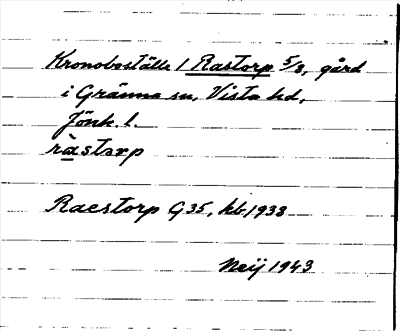 Kronoboställe 1 Rastorp 5/8, gård
i Gränna sn, Vista hd,
Jönk. l.
ràstorp
Raestorp G35, kb 1938
Neij 1943